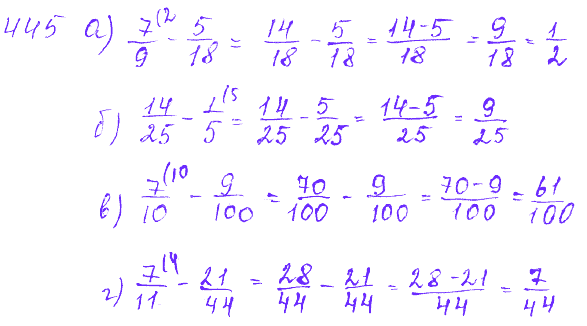 445 а) 7/9 (2 - 5/18 = 14/18 - 5/18 = 14-5/18 = 9/18 = 1/2
б) 14/25 - 1/5 (5 = 14/25 - 5/25 = 14-5/25 = 9/25
в) 7/10 (10 - 9/100 = 70/100 - 9/100 = 70-9/100 = 61/100
г) 7/11 (4 - 21/44 = 28/44 - 21/44 = 28-21/44 = 7/44